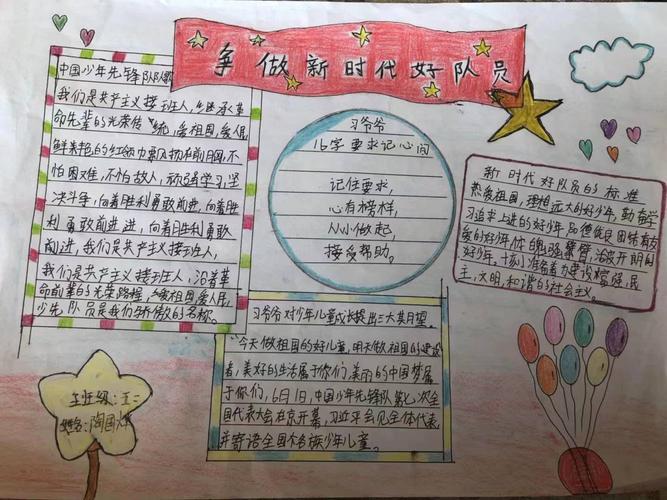 争做新时代好队员
中国少年先锋队队歌
我们是共产主义接班人,继承革
命先辈的光荣传统,爱祖国,爱人民
鲜艳的红领巾飘扬在前胸,不
怕困难,不怕敌人,顽强学习,坚
决斗争,向着胜利勇敢前进,向着胜
利勇敢前进,向着胜利勇敢
前进,我们是共产主义接班人,
我们是共产主义接班人,沿着革
命前辈的光荣路程,爱祖国,爱人民,
少先队员是我们骄傲的名称。
习爷爷
16字要求记心间
记住要求,
心有榜样,
从小做起,
接受帮助。
新时代好队员的标准
热爱祖国,理想远大的好少年,勤奋学
习追求上进的好少年品德优良团结友
爱的好少年,体
好少年,十
主,文明,和谐的社会主义。
习爷爷对少年儿童成长提出三大其月望。
"今天做祖国的好儿童,明天做祖国的建设
者,美好的生活属于你们,美丽的中国梦属
于你们,6月1日,中国少年先锋队第七次全
国代表大会在京开幕,习近平会见全体代表,
并寄语全国各族少年儿童。
班级:五二
姓名:陶国